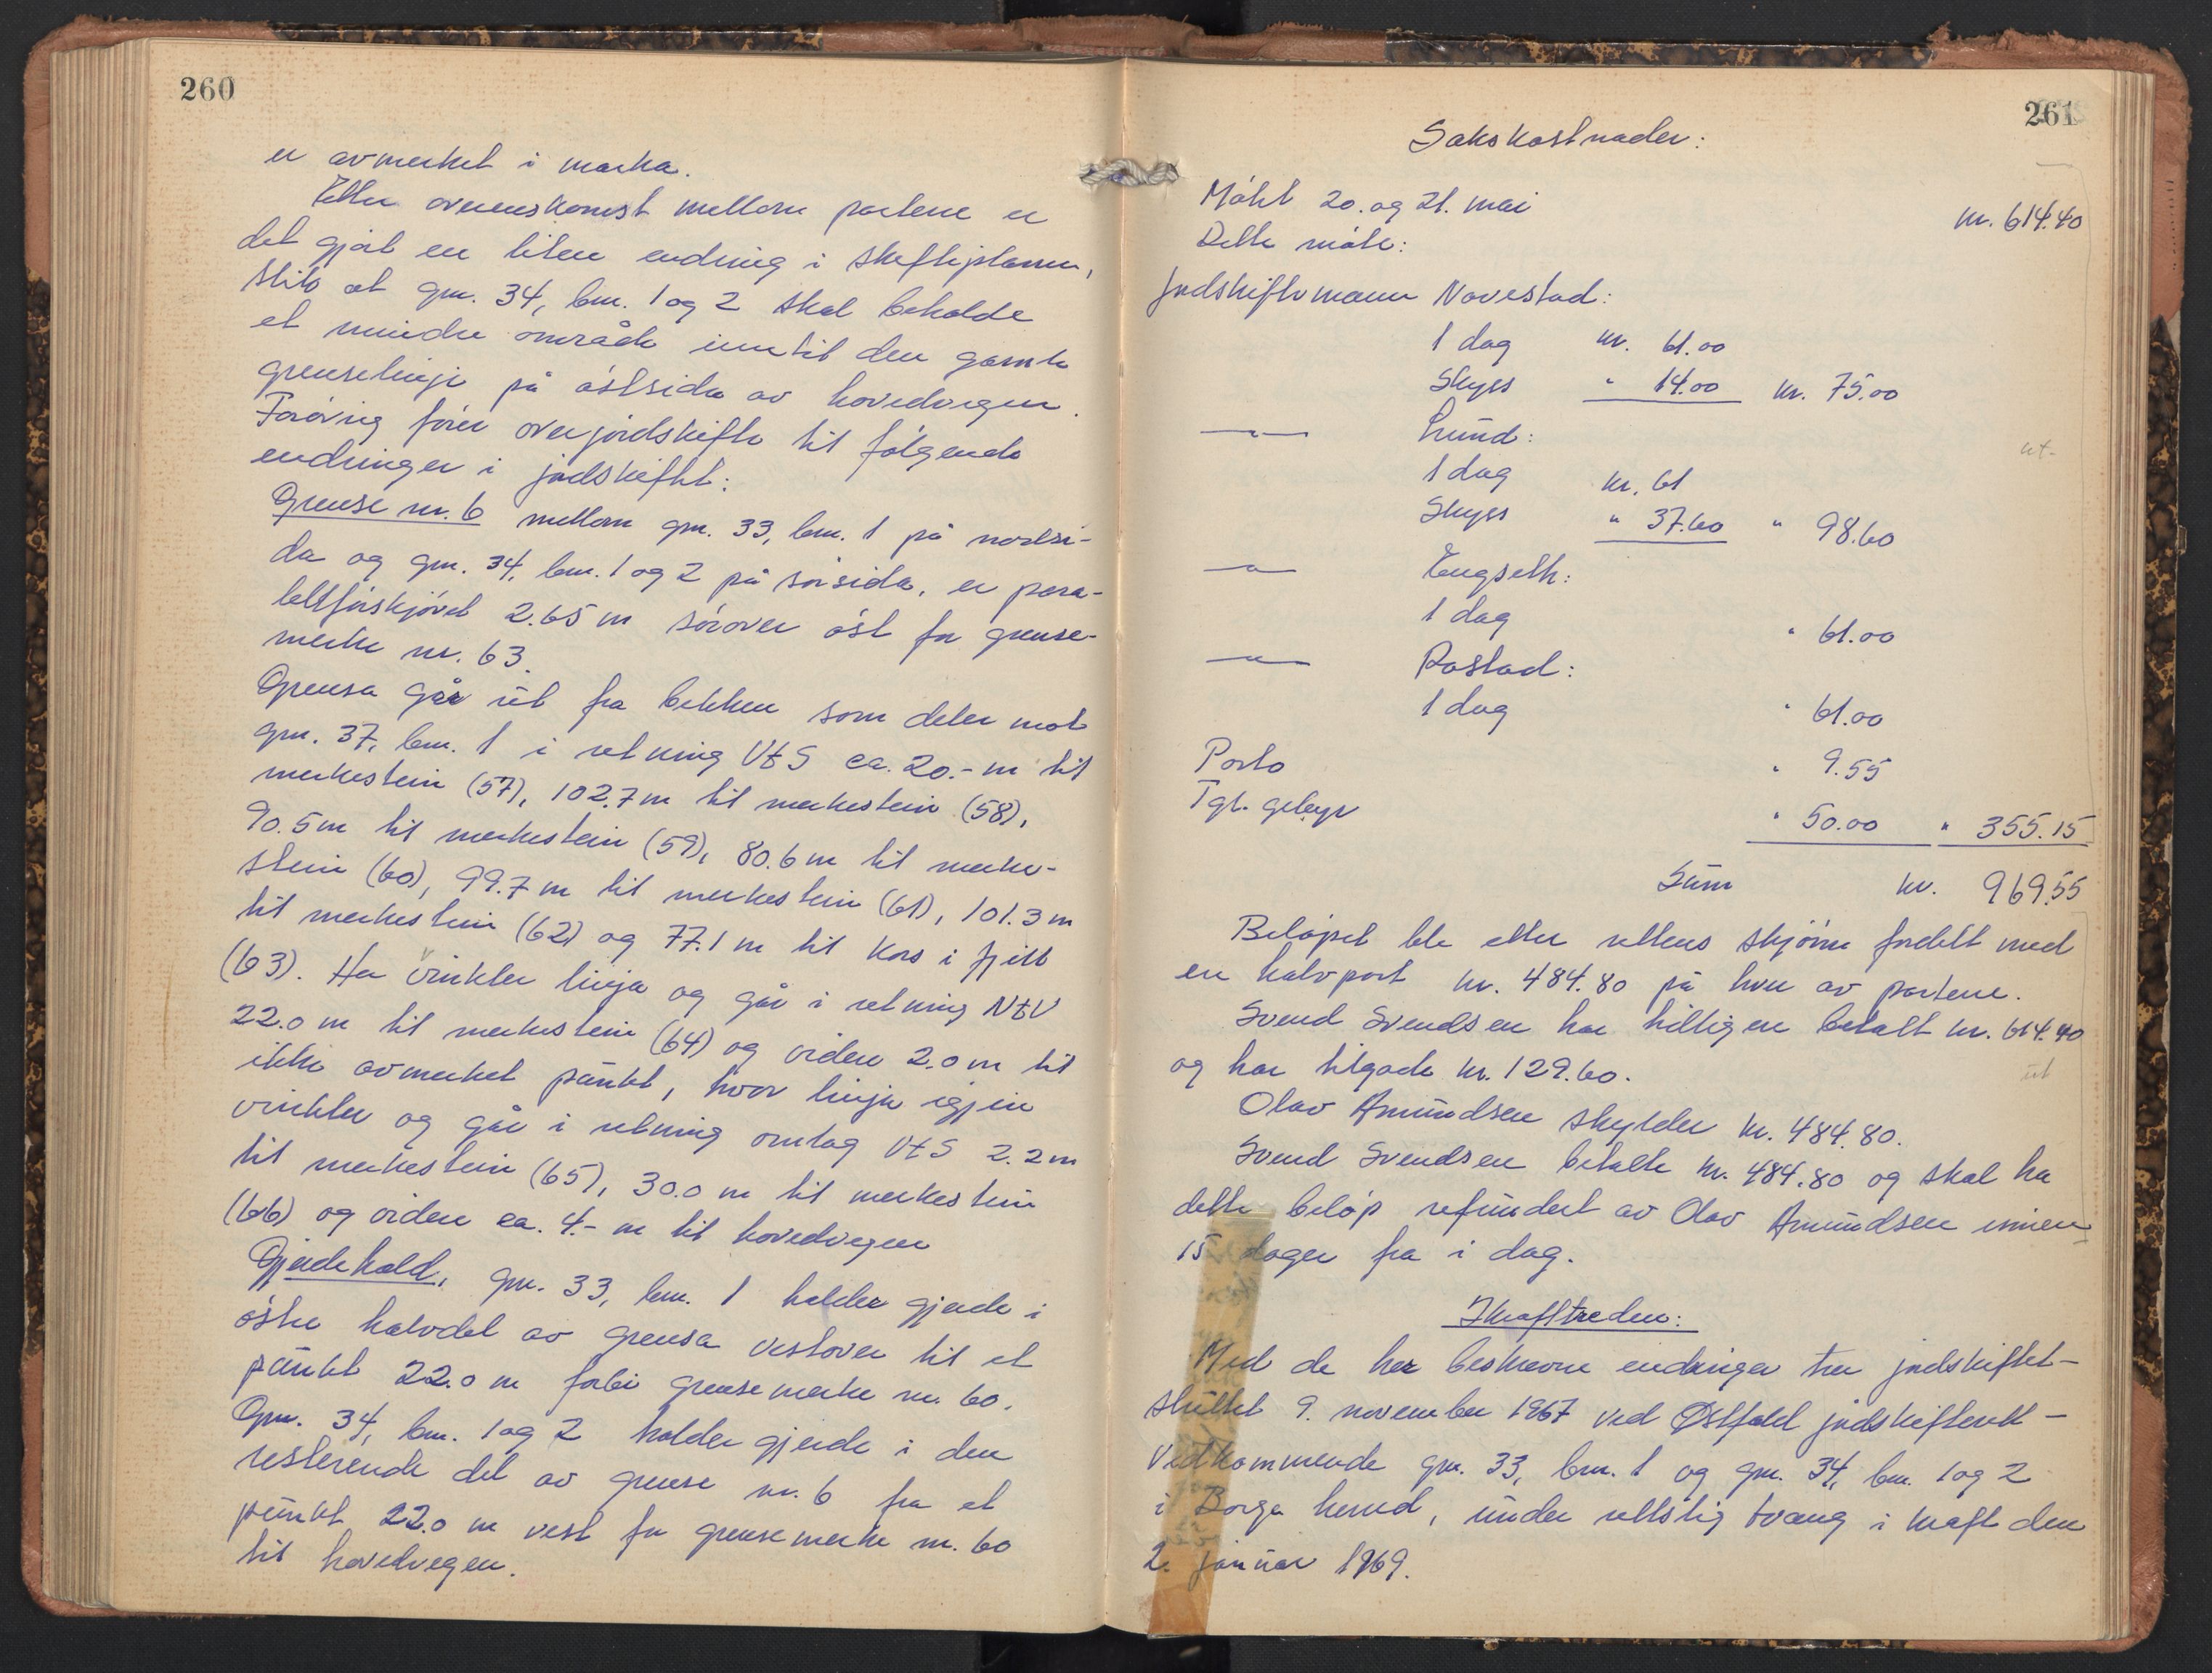 260
er avmerket i marka.
Etter overenskomst mellom partene er
det gjort en liten endring i skifteplanen,
slik at gnr. 34, bnr. 1 og 2 skal beholde
et mindre område inntil den gamle
grenselinje på østsida av hovedvegen.
Forøvrig fører overjordskifte til følgende
endringer i jordskiftet:
Grense nr. 6 mellom gnr. 33, bnr. 1 på nordsi-
da og gnr. 34, bnr. 1 og 2 på sørsida, er para-
lellforskjøvet 2.65 m sørover øst for grense-
merke nr. 63.
Grensa går ut fra bekken som deler mot
gnr. 37, bnr. 1 i retning VtS ca. 20.- m til
merkestein (57), 102.7 m til merkestein (58),
90.5 m til merkestein (59), 80.6 m til merke-
stein (60), 99.7 m til merkestein (61), 101.3 m
til merkestein (62) og 77.1 m til kors i fjell
(63). Her vinkler linja og går i retning NtV
22.0 m til merkestein (64) og videre 2.0 m til
ikke avmerket punkt, hvor linja igjen
vinkler og går i retning omlag VtS 2.2 m
til merkestein (65), 30.0 m til merkestein
(66) og videre ca. 4.- m til hovedvegen
Gjerdehold. gnr. 33, bnr. 1 holder gjerde i
østre halvdel av grensa vestover til et
punkt 22.0 m forbi grensemerke nr. 60.
Gnr. 34, bnr. 1 og 2 holder gjerde i den
resterende del av grense nr. 6 fra et
punkt 22.0 m vest for grensemerke nr. 60
til hovedvegen.
261
Sakskostnader:
Møtet 20. og 21. mai kr. 614.40
Dette møte:
Jordskiftemann Navestad:
1 dag kr. 61.00
Skyss " 14.00 kr. 75.00
—"— Lund:
1 dag kr. 61
Skyss " 37.60 " 98.60
—"— Engseth:
1 dag " 61.00
—"— Rostad:
1 dag " 61.00
Porto " 9.55
Tgl. gebyr " 50.00 " 355.15
Sum kr. 969.55
Beløpet ble etter rettens skjønn fordelt med
en halvpart kr. 484.80 på hver av partene.
Svend Svendsen har tidligere betalt kr. 614.40
og har tilgode kr. 129.60.
Olav Amundsen skylder kr. 484.80.
Svend Svendsen betalte kr. 484.80 og skal ha
dette beløp refundert av Olav Amundsen innen
15 dager fra i dag.
Ikrafttreden:
Med de her beskrevne endringer trer jordskiftet-
sluttet 9. november 1967 ved Østfold jordskifterett -
vedkommende gnr. 33, bnr. 1 og gnr. 34, bnr. 1 og 2
i Borge herred, under rettslig tvang i kraft den
2. januar 1969.